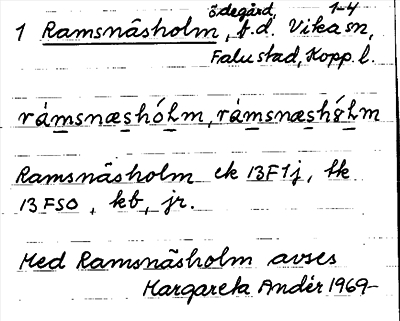 ödegård, 1-4
1 Ramsnäsholm, f.d. Vika sn,
Falu stad, Kopp. l.
rámsnæshólm, rámsnæshǿlm
Ramsnäsholm ek 13F1j, tk
13 FSO, kb, jr.
Med Ramsnäsholm avses
Margareta Andér 1969-